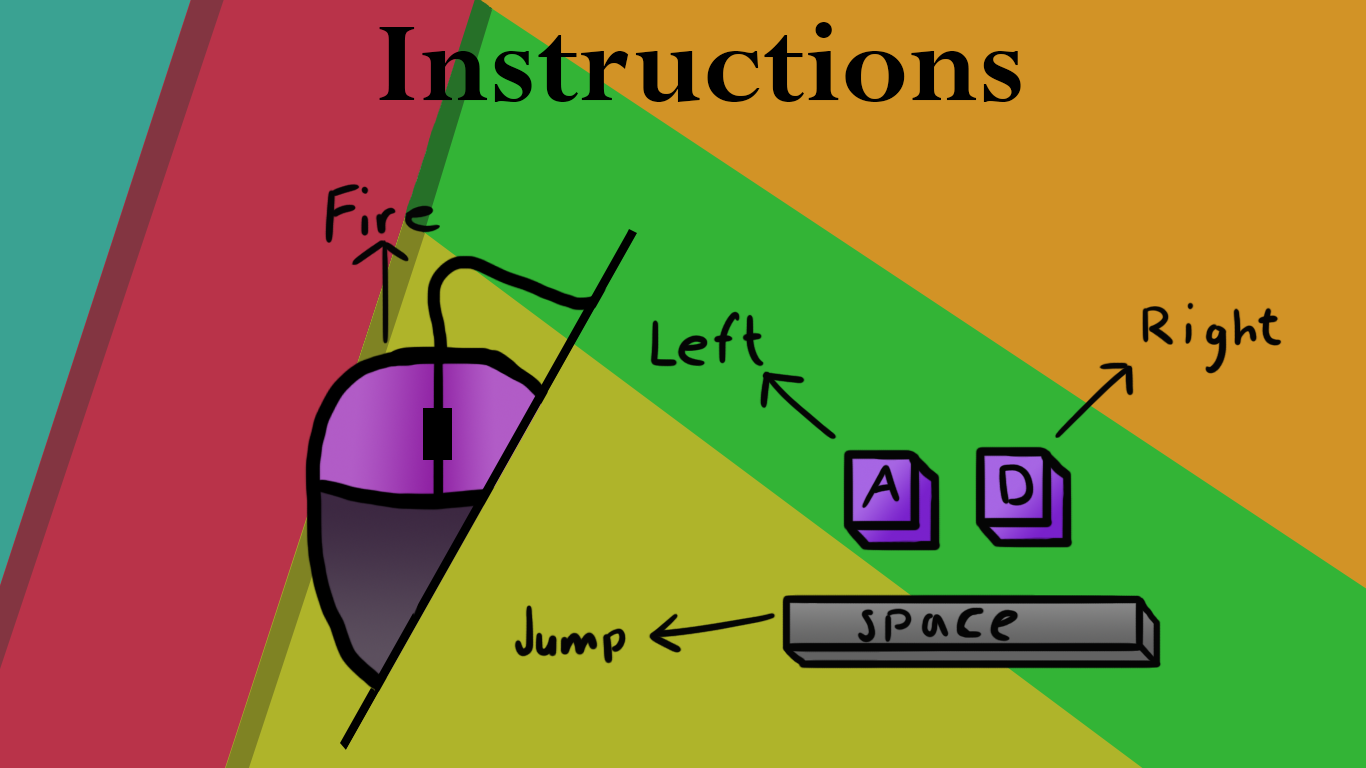 Instructions
Fire
Left
Right
A
D
Jump
space